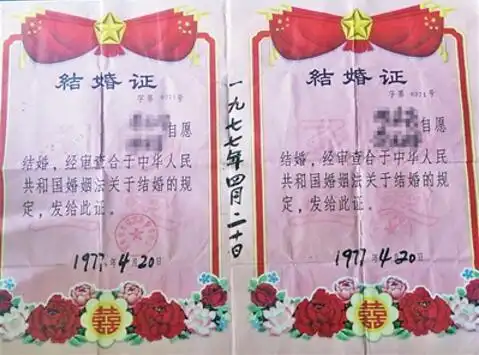 結婚证
字第 号
自愿
结婚，经审查合于中华人民
共和国婚姻法关于结婚的规
定，发给此证。
1977年4月20日
囍
一九七七年四月二十日
結婚证
字第 号
自愿
结婚，经审查合于中华人民
共和国婚姻法关于结婚的规
定，发给此证。
1977年4月20日
囍